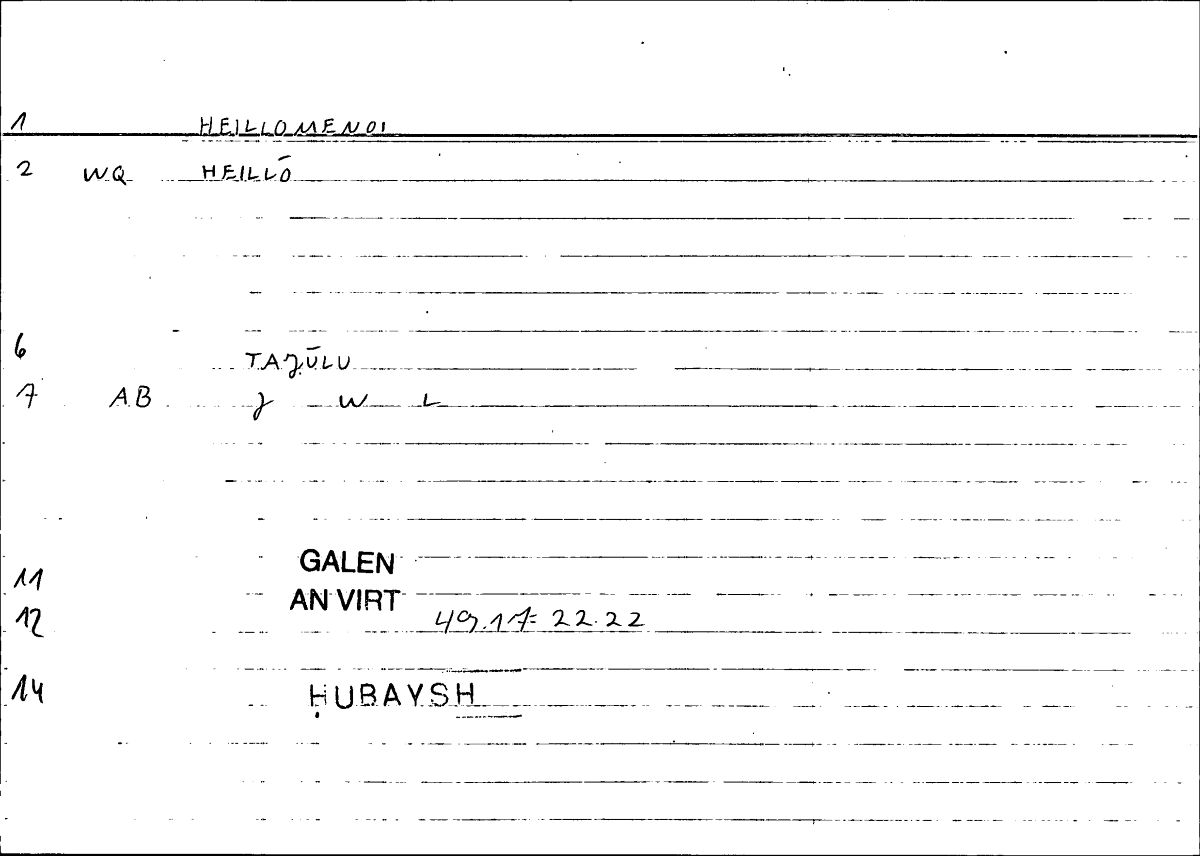 1 HEILLOMENOI
2 WQ HEILLŌ
6 TAJŪLU
7 AB J W L
11 GALEN
12 AN VIRT 49.17 = 22.22
14 ḤUBAYSH